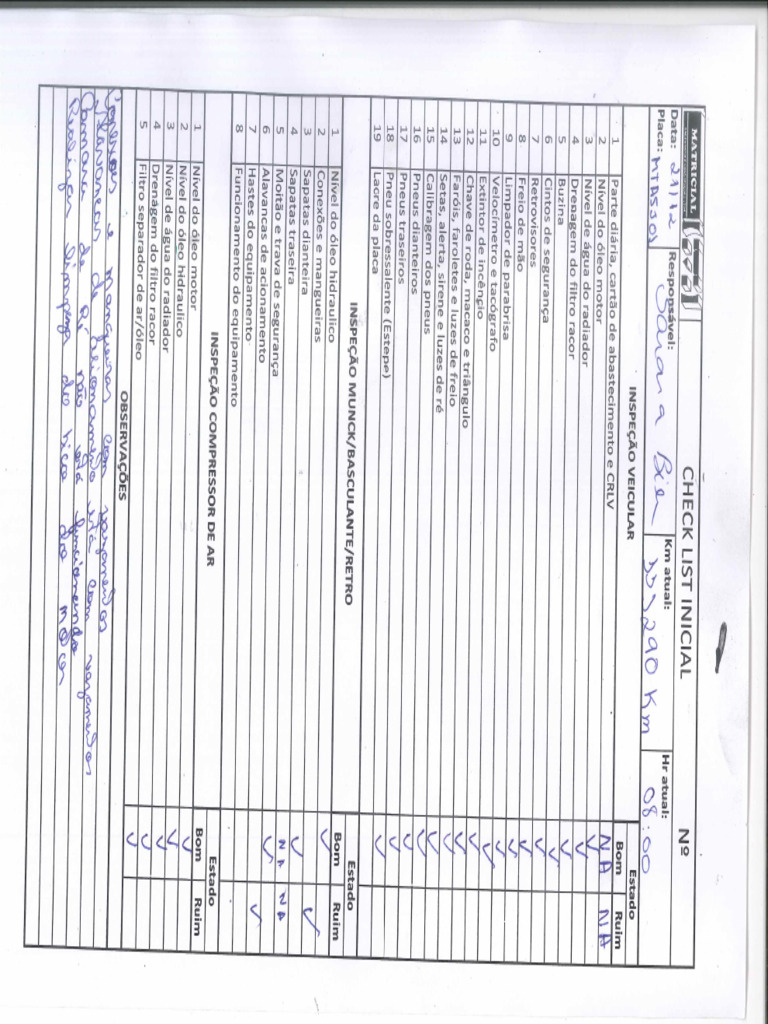 MATRICIAL
CHECK LIST INICIAL Nº
Data: 21/12 Responsável: Km atual: Hr atual:
Placa: MTA5301 333290 Km 08:00
INSPEÇÃO VEICULAR Estado
Bom Ruim
1 Parte diária, cartão de abastecimento e CRLV NA NA
2 Nível do óleo motor ✓
3 Nível de água do radiador ✓
4 Drenagem do filtro racor ✓
5 Buzina ✓
6 Cintos de segurança ✓
7 Retrovisores ✓
8 Freio de mão ✓
9 Limpador de parabrisa ✓
10 Velocímetro e tacógrafo ✓
11 Extintor de incêncio ✓
12 Chave de roda, macaco e triângulo ✓
13 Faróis, faroletes e luzes de freio ✓
14 Setas, alerta, sirene e luzes de ré ✓
15 Calibragem dos pneus ✓
16 Pneus dianteiros ✓
17 Pneus traseiros ✓
18 Pneu sobressalente (Estepe) ✓
19 Lacre da placa ✓
INSPEÇÃO MUNCK/BASCULANTE/RETRO Estado
Bom Ruim
1 Nível do óleo hidraulico ✓
2 Conexões e mangueiras ✓
3 Sapatas dianteira ✓
4 Sapatas traseira
5 Moitão e trava de segurança NA NA
6 Alavancas de acionamento ✓
7 Hastes do equipamento ✓
8 Funcionamento do equipamento
INSPEÇÃO COMPRESSOR DE AR Estado
Bom Ruim
1 Nível do óleo motor ✓
2 Nível do óleo hidraulico ✓
3 Nível de água do radiador ✓
4 Drenagem do filtro racor ✓
5 Filtro separador de ar/óleo ✓
OBSERVAÇÕES
Conexões e mangueiras com vazamentos
Alavancas de está com vazamentos
Camara de Ré não está funcionando
Realizar limpeza do bico do